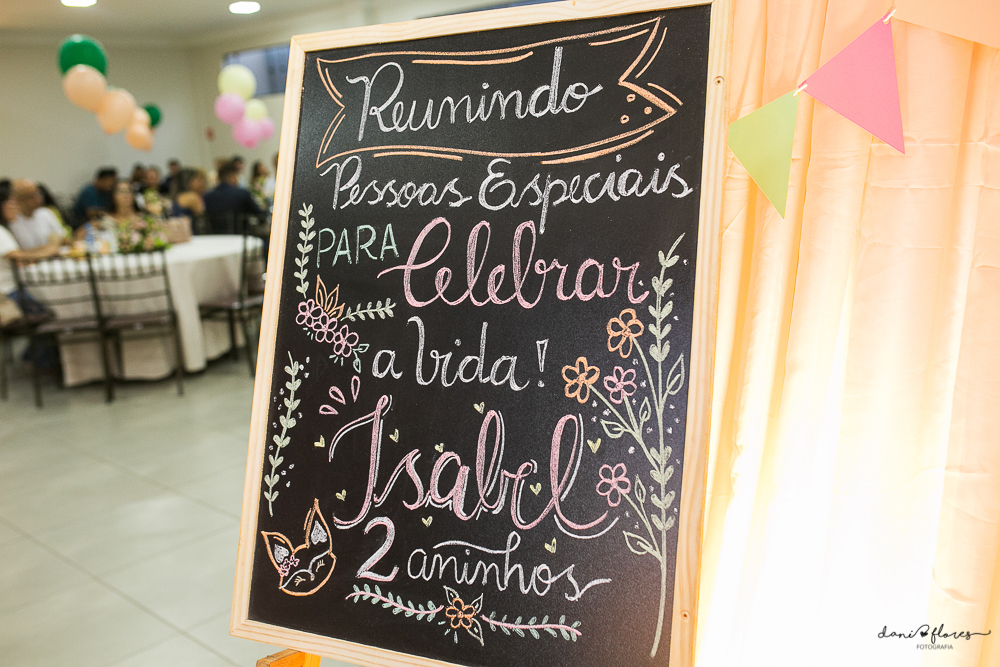 Reunindo
Pessoas Especiais
PARA Celebrar
a vida!
Isabel
2 aninhos
dani flores
FOTOGRAFIA